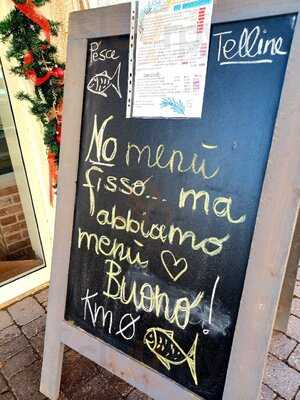 Pesce
Telline
No menù
fisso... ma
abbiamo
menù ♡
Buono!
Km Ø